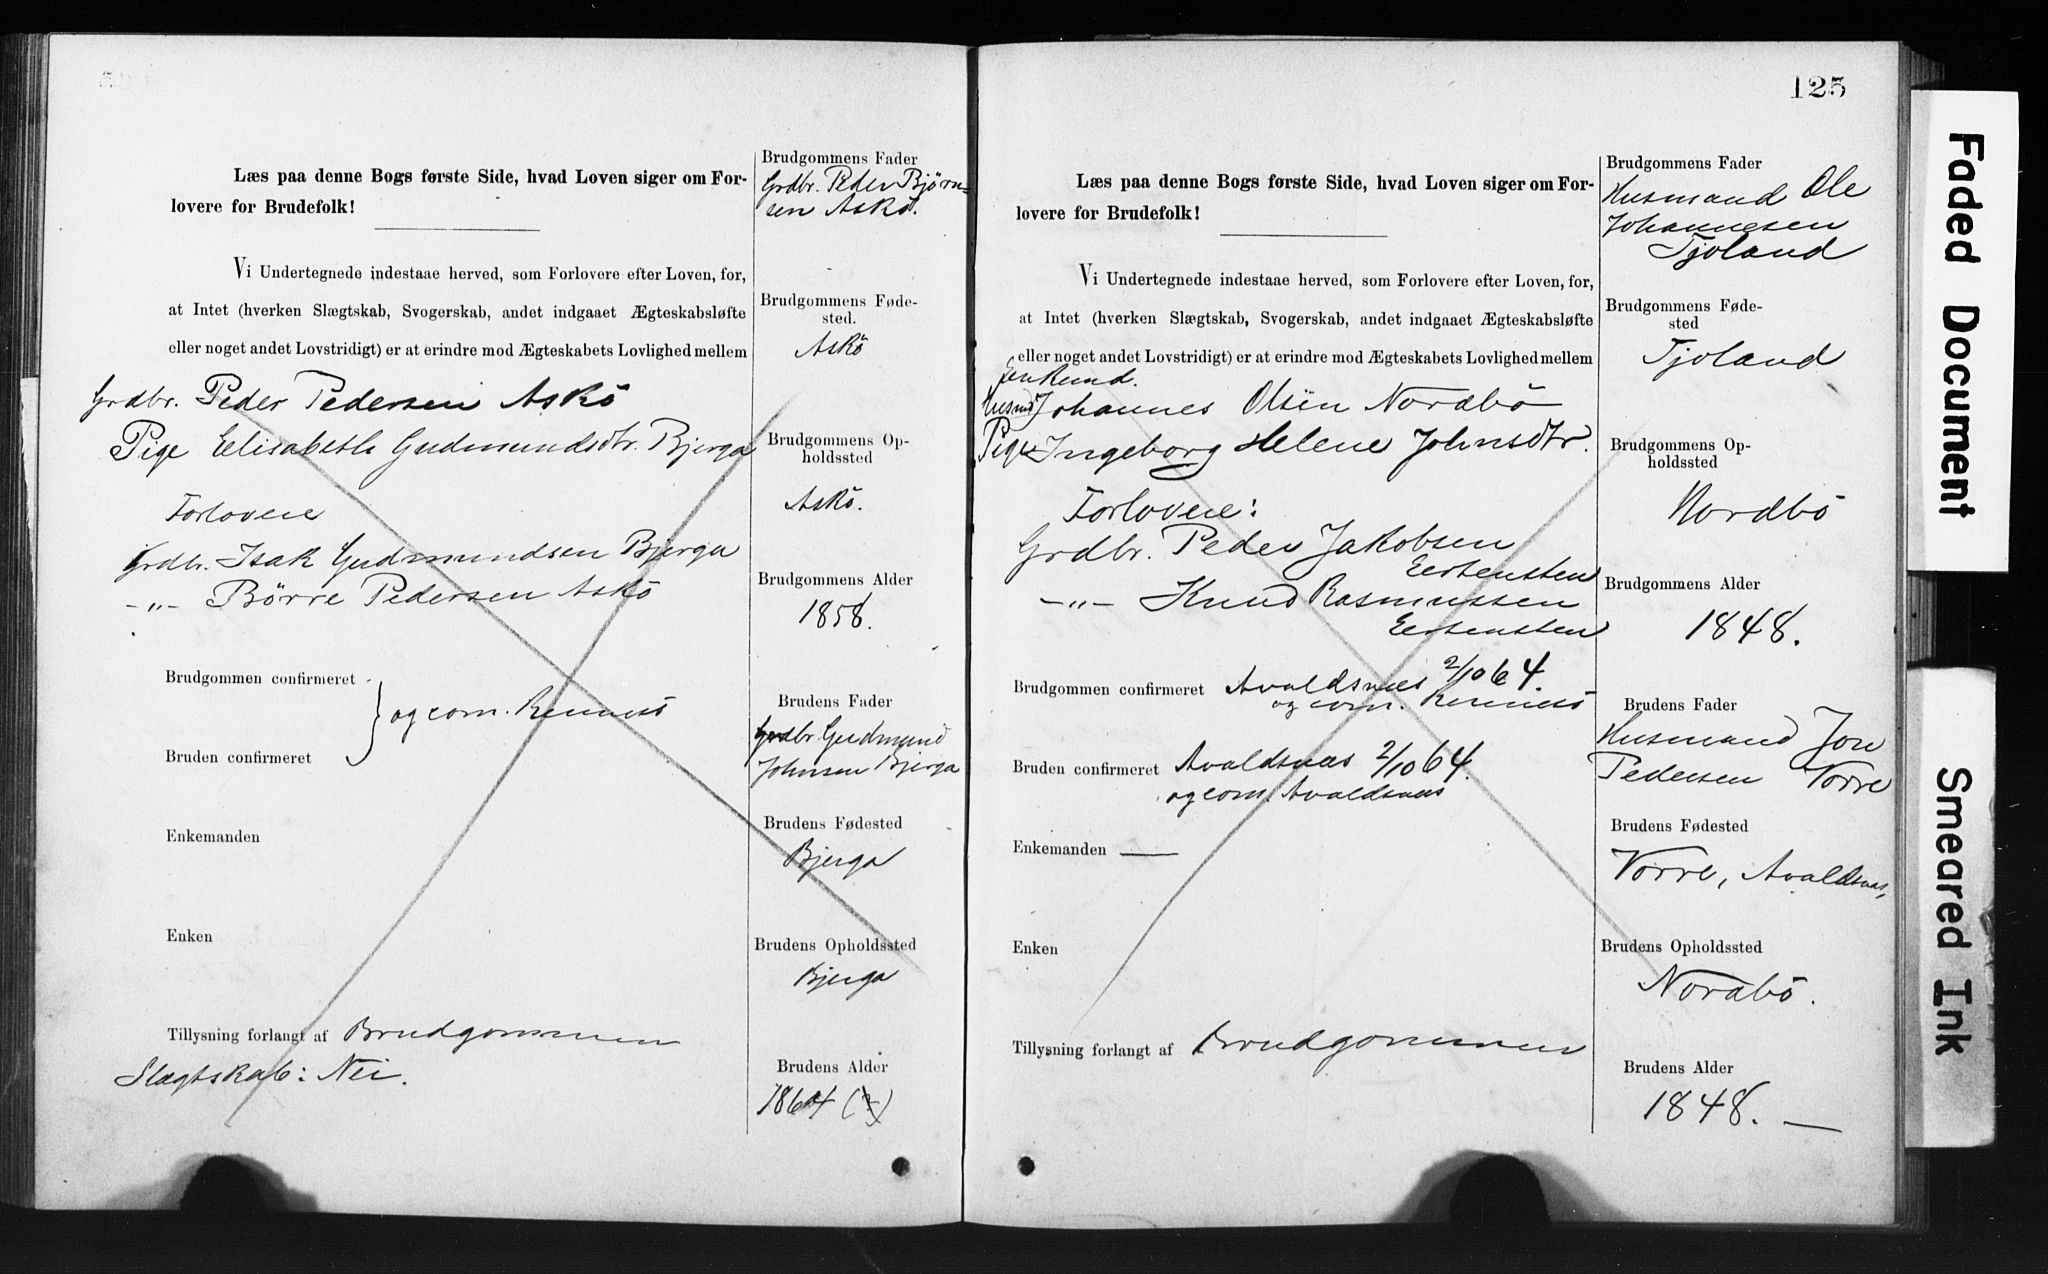 Læs paa denne Bogs første Side, hvad Loven siger om For-
lovere for Brudefolk!
Vi Undertegnede indestaae herved, som Forlovere efter Loven, for,
at Intet (hverken Slægtskab, Svogerskab, andet indgaaet Ægteskabsløfte
eller noget andet Lovstridigt) er at erindre mod Ægteskabets Lovlighed mellem
Grdbr. Peder Pedersen Askö
Pige Elisabeth Gudmundsdtr. Bjerga
Forlovere
Grdbr. Isak Gudmundsen Bjerga
-„- Börre Pedersen Askö
Brudgommen confirmeret
og com. Rennesö
Bruden confirmeret
Enkemanden
Enken
Tillysning forlangt af Brudgommen
Slægtskab: Nei.
Brudgommens Fader
Grdbr. Peder Bjørn-
sen Askö.
Brudgommens Føde-
sted.
Askö
Brudgommens Op-
holdssted
Askö.
Brudgommens Alder
1858.
Brudens Fader
Grdbr. Gudmund
Johnsen Bjerga
Brudens Fødested
Bjerga
Brudens Opholdssted
Bjerga
Brudens Alder
1864 (?)
125
Læs paa denne Bogs første Side, hvad Loven siger om For-
lovere for Brudefolk!
Vi Undertegnede indestaae herved, som Forlovere efter Loven, for,
at Intet (hverken Slægtskab, Svogerskab, andet indgaaet Ægteskabsløfte
eller noget andet Lovstridigt) er at erindre mod Ægteskabets Lovlighed mellem
Enkemd.
Husmd Johannes Olsen Nordbö
Pige Ingeborg Helene Johnsdtr.
Forlovere:
Grdbr. Peder Jakobsen
Eertensten
-„- Knud Rasmussen
Eertensten
Brudgommen confirmeret Avaldsnæs 2/10 64.
og com. Rennesö
Bruden confirmeret Avaldsnæs 2/10 64.
og com. Avaldsnæs
Enkemanden —
Enken
Tillysning forlangt af Brudgommen
Brudgommens Fader
Husmand Ole
Johannesen
Tjoland
Brudgommens Føde-
sted
Tjoland
Brudgommens Op-
holdssted
Nordbö
Brudgommens Alder
1848.
Brudens Fader
Husmand Jon
Pedersen Vorre
Brudens Fødested
Vorre, Avaldsnæs,
Brudens Opholdssted
Nordbö.
Brudens Alder
1848. —
Faded Document
Smeared Ink